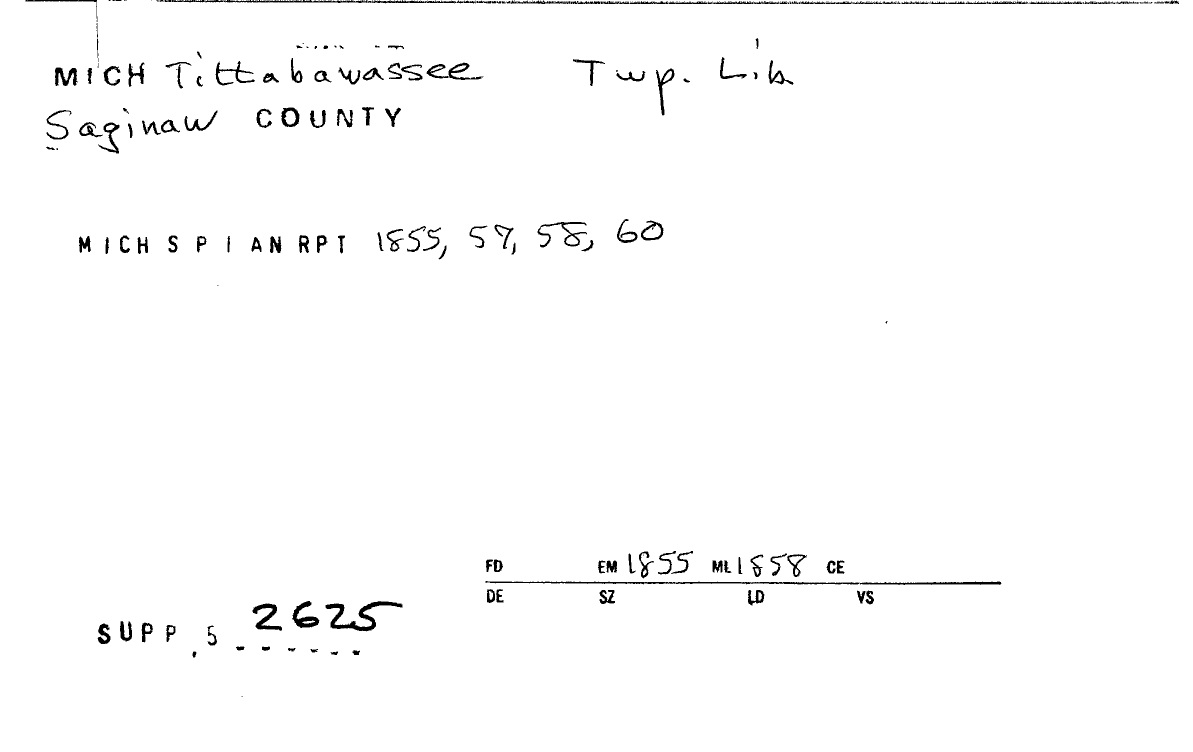 MICH Tittabawassee Twp. Lib
Saginaw COUNTY
MICH S P I AN RPT 1855, 57, 58, 60
FD EM 1855 ML 1858 CE
DE SZ LD VS
SUPP. 5 2625